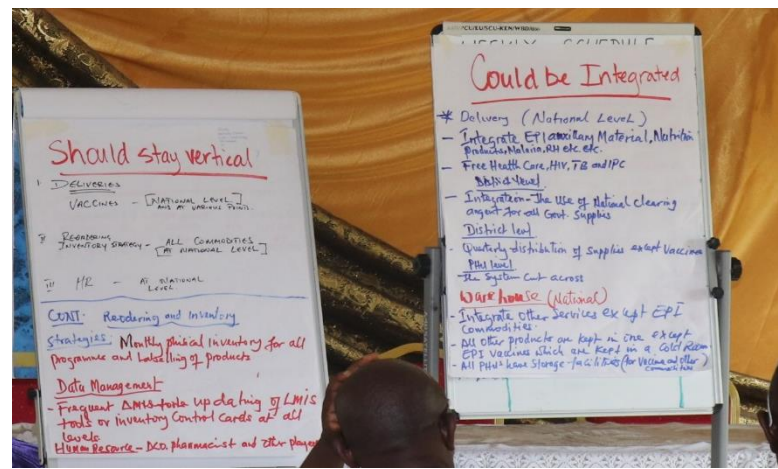 Should stay vertical
I DELIVERIES
VACCINES - [NATIONAL LEVEL]
AND AT VARIOUS POINTS.
II REORDERING
INVENTORY STRATEGY - [ALL COMMODITIES
AT NATIONAL LEVEL]
III HR - AT NATIONAL
LEVEL.
CONT. Reordering and Inventory
Strategies. Monthly phisical inventory for all
Programme and labelling of products
Data Management
- Frequent updating of LMIS
tools or inventory Control Cards at all
levels
Human Resource - DCO, pharmacist and other players
WEEKLY SCHEDULE
Could be Integrated
* Delivery (National Level)
- Integrate EPI auxillary Material, Nutrition
products, Malaria, RH etc etc.
- Free Health Care, HIV, TB and IPC
District level
- Integration - The use of National Clearing
angent for all Govt. Supplies
District level
- Quarterly distribution of Supplies except Vaccines
PHU level
The System Cut across
Ware house (National)
- Integrate other Services except EPI
Commodities.
- All other products are kept in one except
EPI vaccines which are kept in a Cold Room
- All PHUs have Storage facilities (for Vaccine and other
commodities)